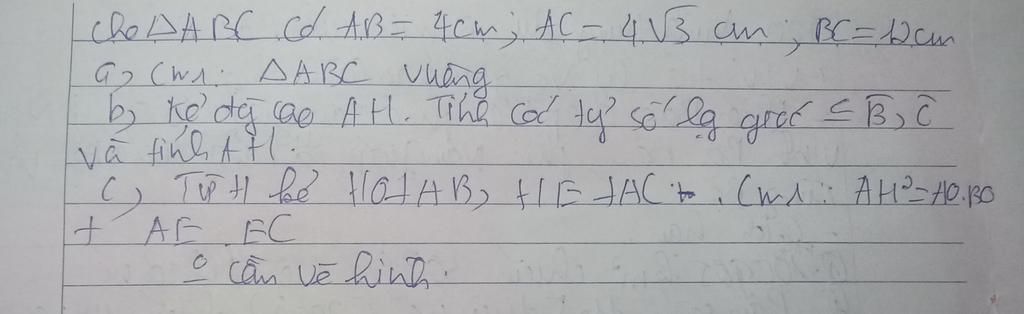 Cho △ABC có AB = 4cm; AC = 4√3 cm; BC = 12cm
a, Cm1: △ABC vuông
b, Kẻ đg cao AH. Tính các tỷ số lg giác ≤ B̂, Ĉ
và tính AH.
c, Từ H kẻ HO⊥AB, HE⊥AC. Cm1: AH²=AO.BO
+ AE EC
cần vẽ hình.